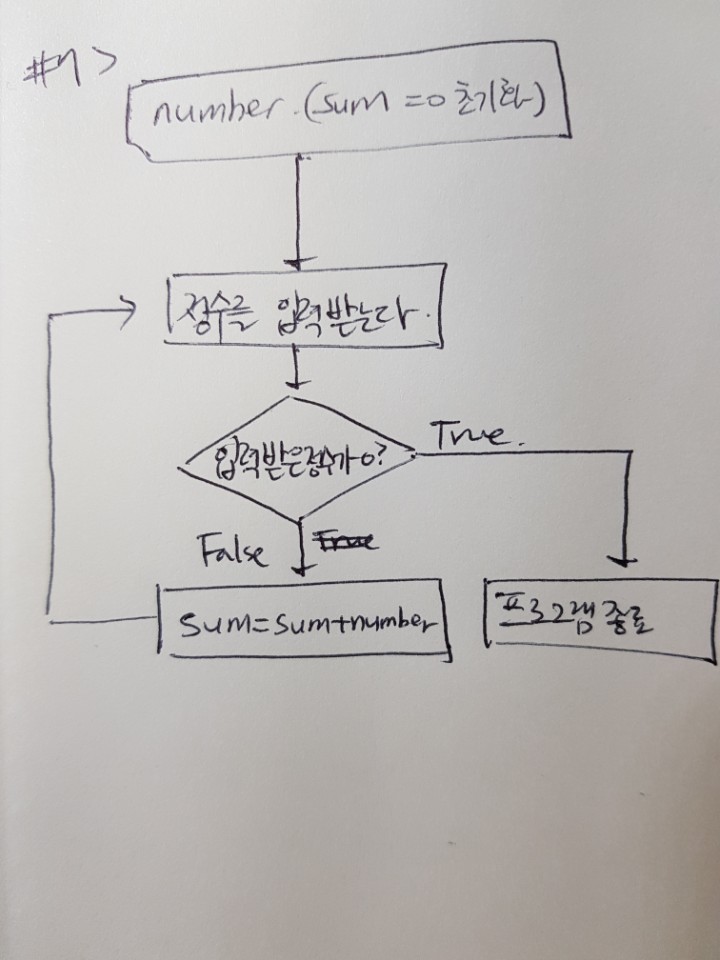 #7>
number.(sum=0 초기화)
정수를 입력받는다.
입력받은정수가0?
True.
False True
sum=sum+number
프로그램 종료